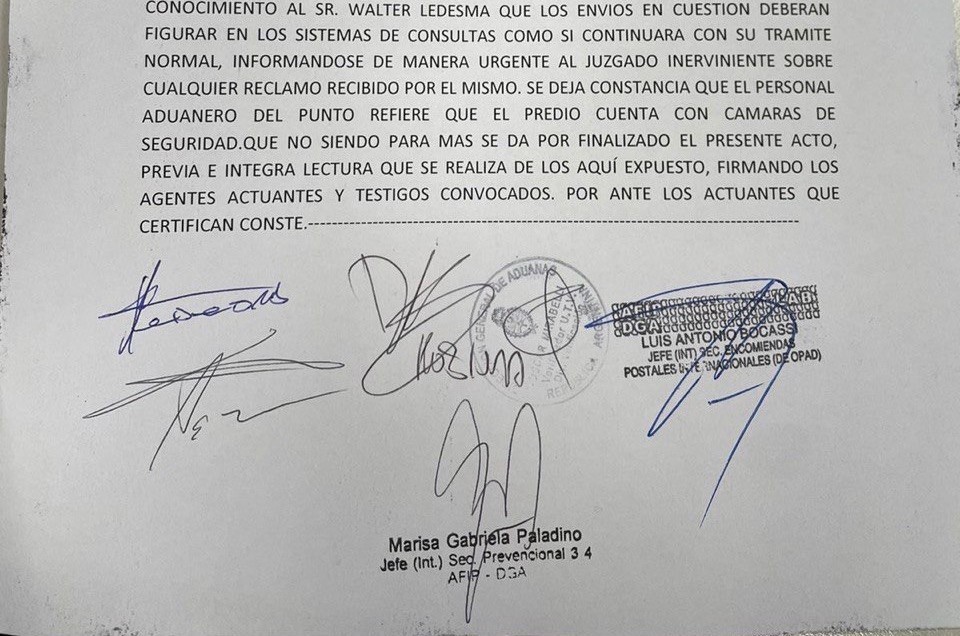 CONOCIMIENTO AL SR. WALTER LEDESMA QUE LOS ENVIOS EN CUESTION DEBERAN
FIGURAR EN LOS SISTEMAS DE CONSULTAS COMO SI CONTINUARA CON SU TRAMITE
NORMAL, INFORMANDOSE DE MANERA URGENTE AL JUZGADO INERVINIENTE SOBRE
CUALQUIER RECLAMO RECIBIDO POR EL MISMO. SE DEJA CONSTANCIA QUE EL PERSONAL
ADUANERO DEL PUNTO REFIERE QUE EL PREDIO CUENTA CON CAMARAS DE
SEGURIDAD.QUE NO SIENDO PARA MAS SE DA POR FINALIZADO EL PRESENTE ACTO,
PREVIA E INTEGRA LECTURA QUE SE REALIZA DE LOS AQUÍ EXPUESTO, FIRMANDO LOS
AGENTES ACTUANTES Y TESTIGOS CONVOCADOS. POR ANTE LOS ACTUANTES QUE
CERTIFICAN CONSTE.------------------------------------------------------------------
GENERAL DE ADUANAS
REPUBLICA
AFIP
DGA
LUIS ANTONIO BOCASSI
JEFE (INT) SEC. ENCOMIENDAS
POSTALES INTERNACIONALES (DE OPAD)
Marisa Gabriela Paladino
Jefe (Int.) Sec. Prevencional 3 4
AFIP - DGA